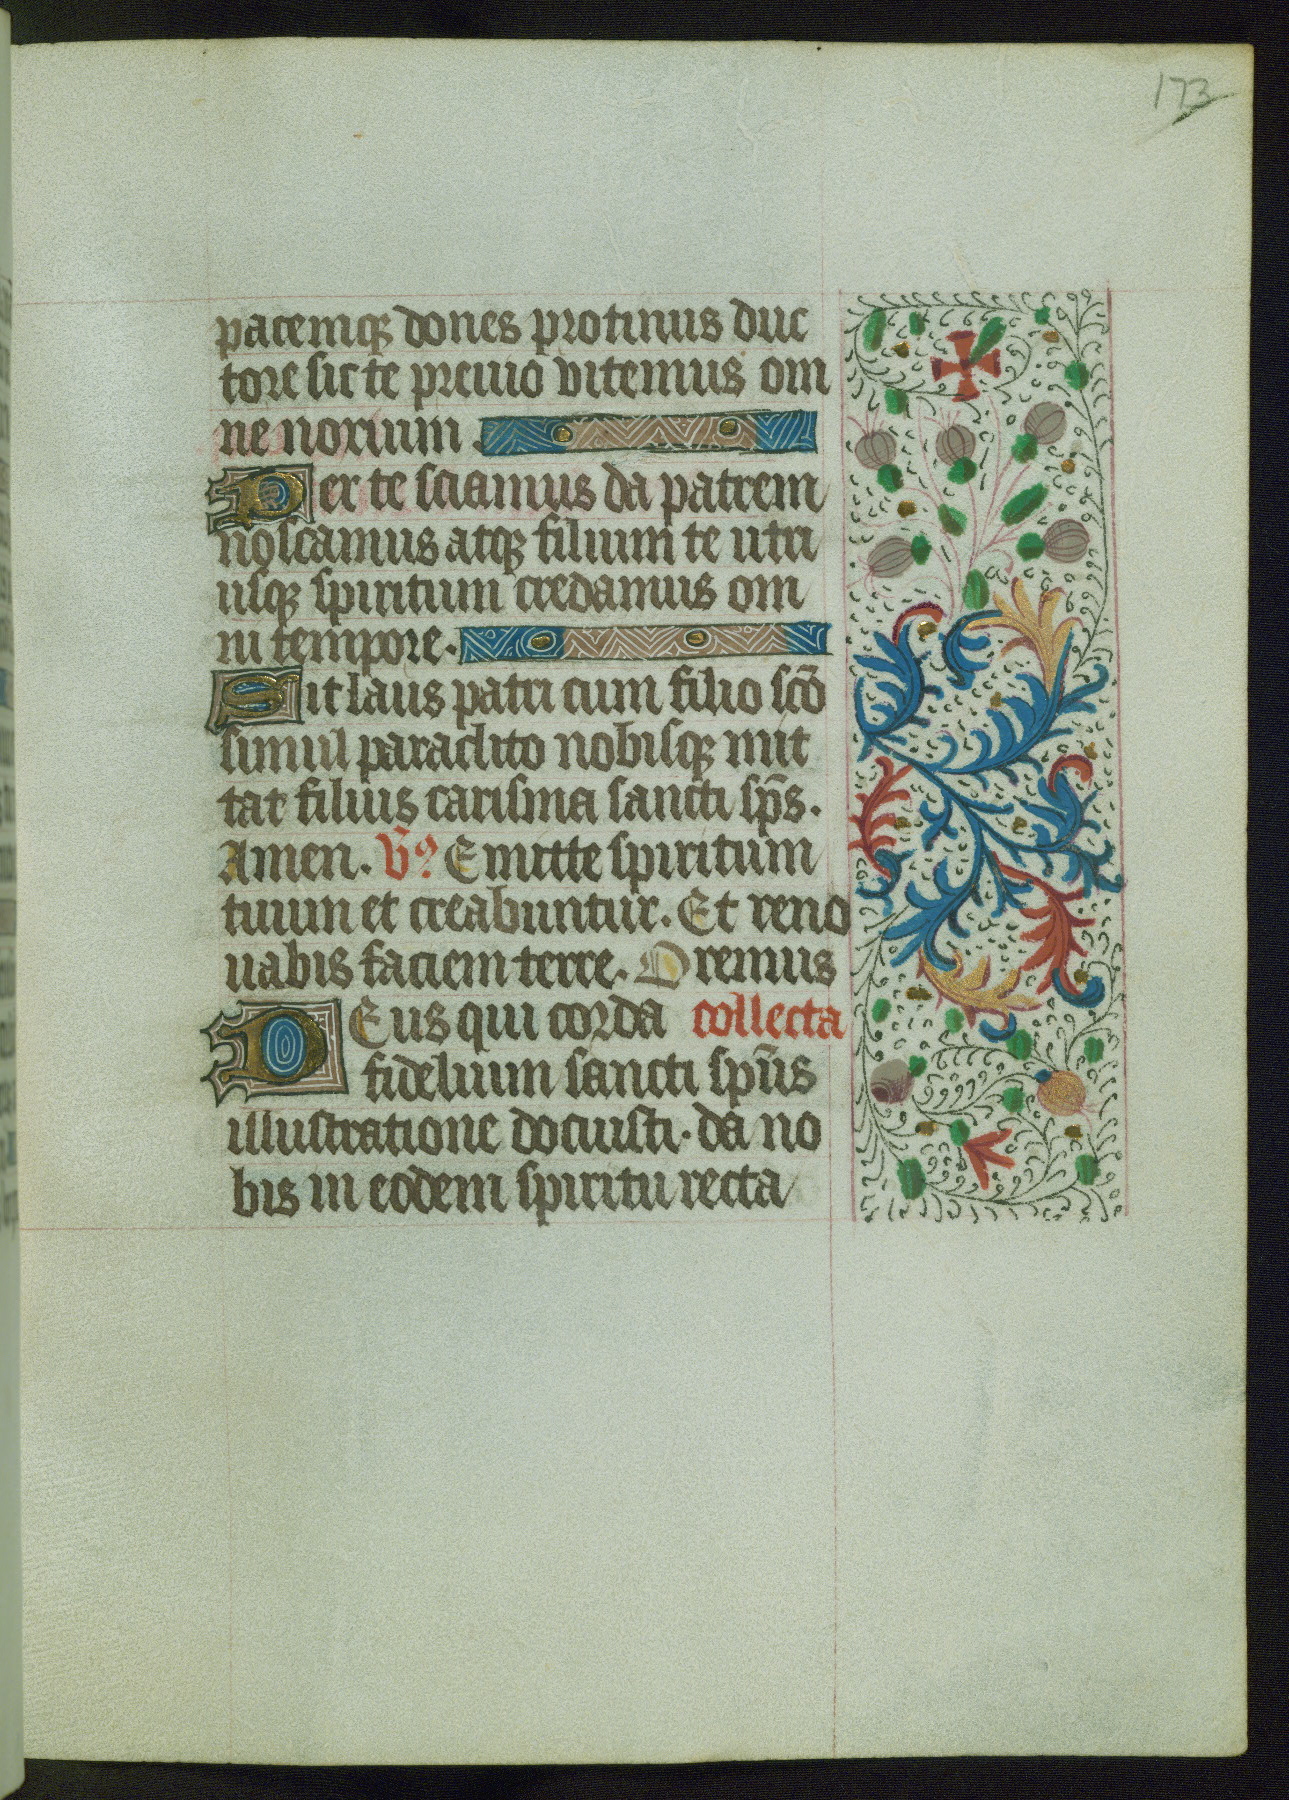 173
pacemq; dones protinus duc
tore sic te previo vitemus om
ne noxium.
Per te sciamus da patrem
noscamus atq; filium te utri
usq; spiritum credamus om
ni tempore.
Sit laus patri cum filio scō
simul paraclito nobisq; mit
tat filius carisma sancti sp̄s.
Amen. V⁹ Emitte spiritum
tuum et creabuntur. Et reno
uabis faciem terre. Oremus
Deus qui corda collecta
fidelium sancti sp̄us
illustratione docuisti. da no
bis in eodem spiritu recta